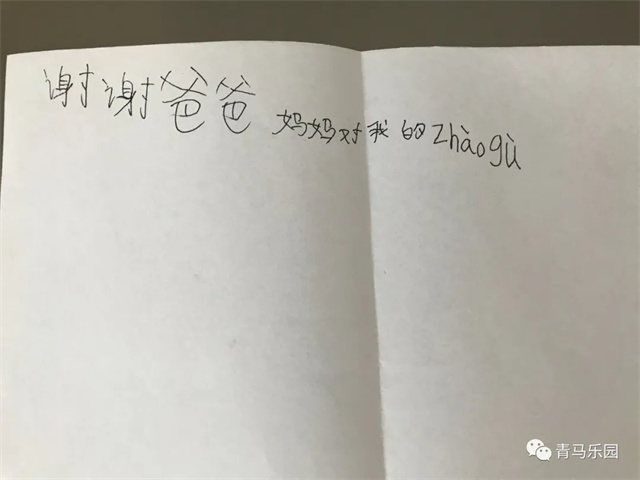 谢谢爸爸妈妈对我的zhàogù
青马乐园